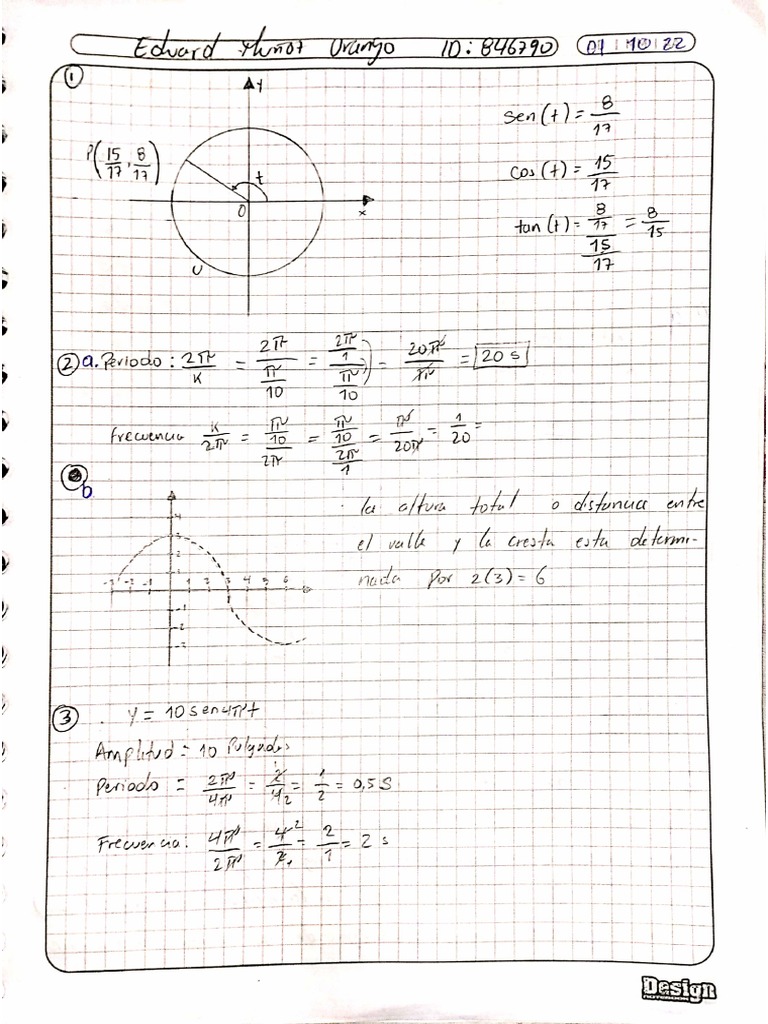 Eduard Muñoz Urango ID: 846790 01 | 10 | 22
1
y
P(15/17, 8/17)
t
O
x
U
sen(t) = 8/17
cos(t) = 15/17
tan(t) = 8/17 / 15/17 = 8/15
2 a. Periodo: 2π/K = 2π / π/10 = 2π/1 / π/10 = 20π/π = 20 s
Frecuencia K/2π = π/10 / 2π = π/10 / 2π/1 = π/20π = 1/20 =
b
la altura total o distancia entre
el valle y la cresta esta determi-
nada por 2(3) = 6
-3 -2 -1 1 2 3 4 5 6
3 . Y = 10 sen 4πt
Amplitud = 10 Pulgadas
Periodo = 2π/4π = 2/4 2 = 1/2 = 0,5 S
Frecuencia: 4π/2π = 4 2/2 1 = 2/1 = 2 s
Design